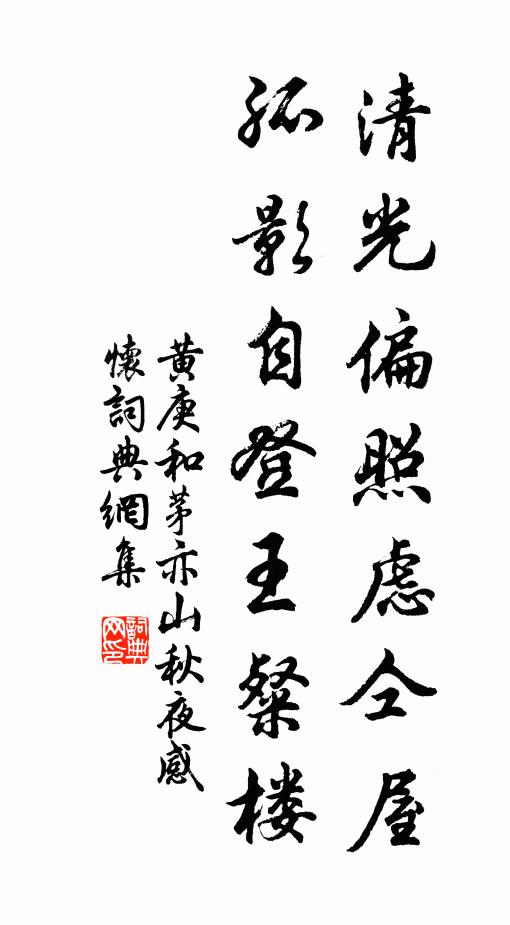 清光偏照虑仝屋
孤影自登王粲楼
黄庚和茅亦山秋夜感
懷詞典網集
詞典网印